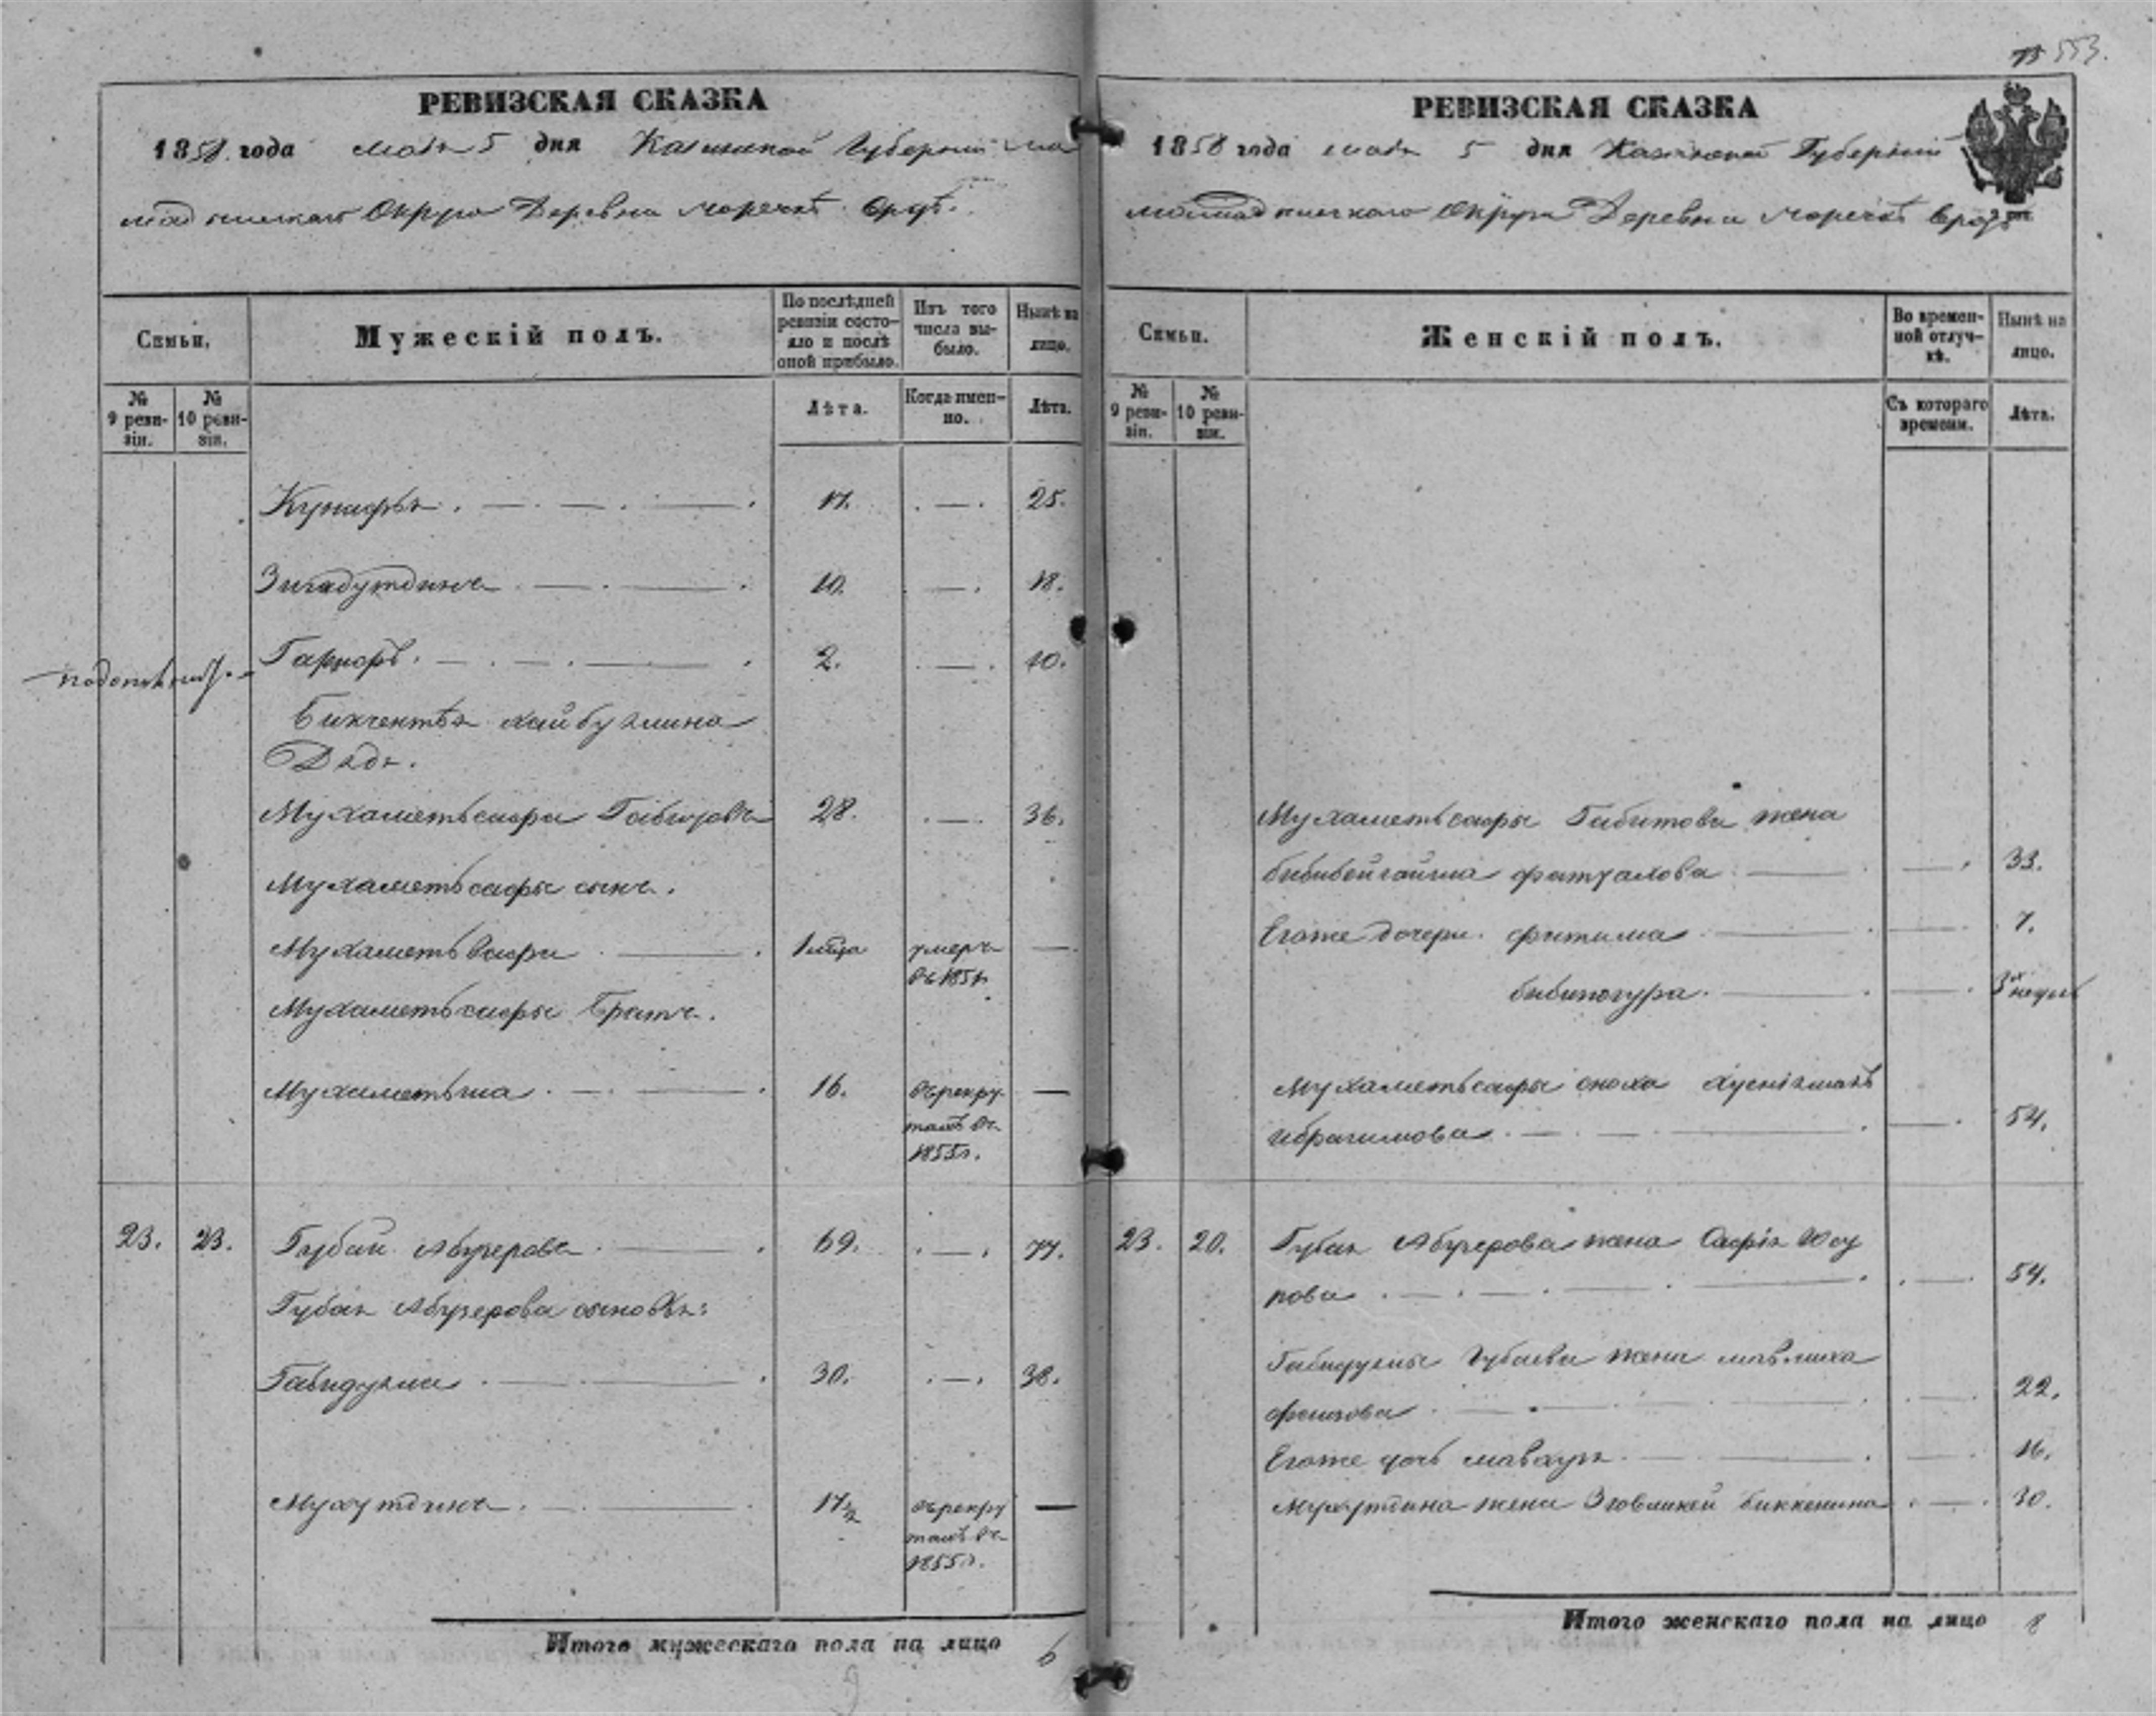 553.
РЕВИЗСКАЯ СКАЗКА
1858 года мая 5 дня Казанской Губернии ма
мадышскаго Округа Деревни
Семьи,
Мужескій полъ.
По послѣдней ревизіи состояло и послѣ оной прибыло.
Изъ того числа выбыло.
Нынѣ на лицо.
№ 9 ревизіи.
№ 10 ревизіи.
Лѣта.
Когда именно.
Лѣта.
17. — 25.
Зигадутдинъ 10. — 18.
2. — 10.
Бикчентѣя хайбуллина
Дядя.
Мухаметьсафа 28. — 36.
Мухаметьсафы сынъ.
Мухаметь 1 умеръ —
въ 1851
Мухаметьсафы братъ.
Мухаметьша 16. въ рекру —
тахъ въ
1855г.
23. 23. Губай Абузерова 69. — 77.
Губая Абузерова сыновья:
Габидулла 30. — 38.
Мухутдинъ 17½ въ рекру —
тахъ въ
1855г.
Итого мужескаго пола на лицо 6
РЕВИЗСКАЯ СКАЗКА
1858 года мая 5 дня Казанской Губернии
мамадышскаго Округа Деревни
Семьи.
Женскій полъ.
Во временной отлучкѣ.
Нынѣ на лицо.
№ 9 ревизіи.
№ 10 ревизіи.
Съ котораго времени.
Лѣта.
Мухаметьсафы Габитова жена
фаткулова — 33.
Егоже дочери фатима — 7.
бибиногура — 3х недѣл
Мухаметьсафы сноха
ибрагимова — 54.
23. 20. Губая Абузерова жена Сафія Юсу
пова — 54.
Габидуллы Губаева жена
фаизова — 22.
Егоже дочь — 16.
Мухутдина жена биккенина — 30.
Итого женскаго пола на лицо 8